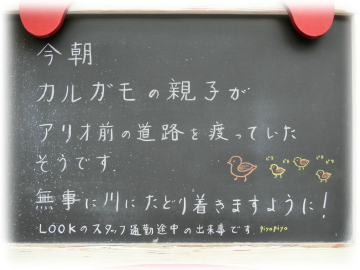 今朝
カルガモの親子が
アリオ前の道路を渡っていた
そうです.
無事に川にたどり着きますように!
LOOKのスタッフ通勤途中の出来事です piyopiyo